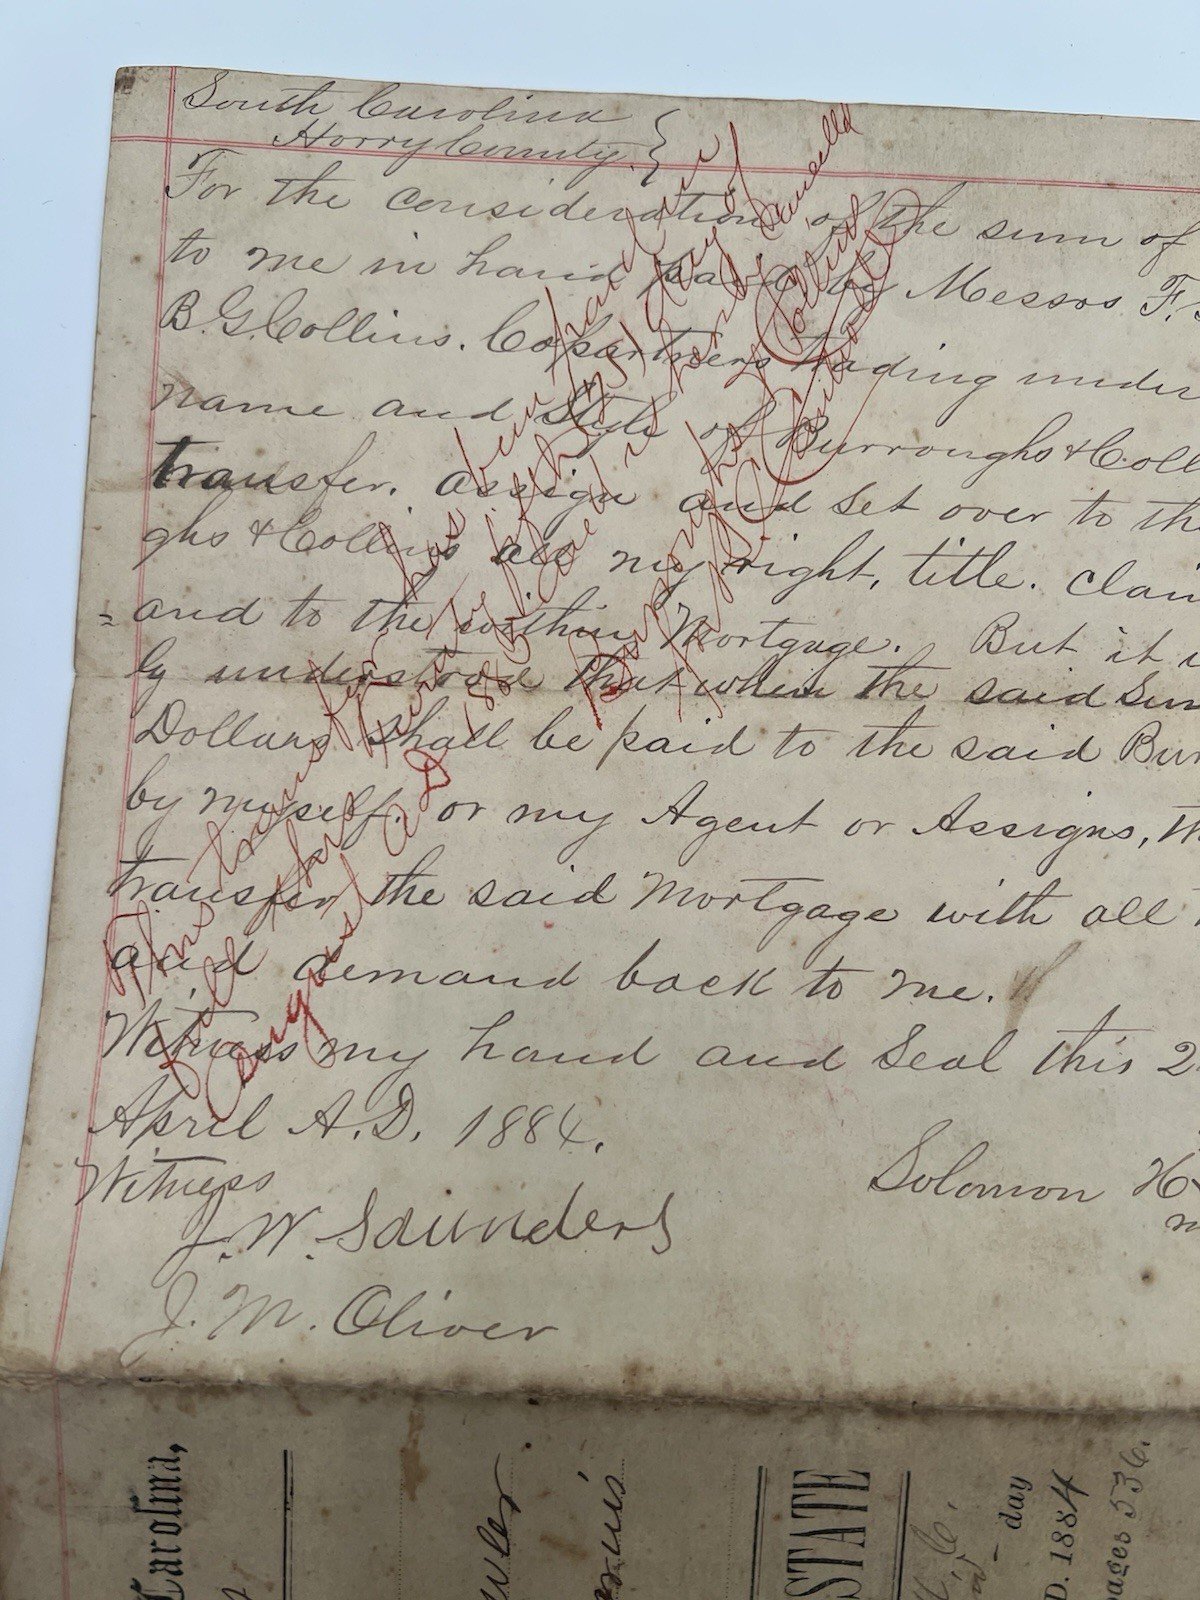 South Carolina }
Horry County. }
For the consideration of the sum of
to me in hand paid by Messrs F.
B. G. Collins. Copartners trading under
name and Style of Burroughs & Coll
transfer. assign and set over to th
ghs & Collins all my right, title. Clai
= and to the within Mortgage. But it i
ly understood that when the said Sum
Dollars shall be paid to the said Bur
by myself. or my Agent or Assigns, th
transfer the said Mortgage with all
and demand back to me.
Witness my hand and Seal this 2
April A.D. 1884.
Witness
J. W. Saunders
J. M. Oliver
Solomon
The transfer has been paid in
full this Twenty fifth day of
August AD 188 and is hereby Cancelled
Burroughs & Collins
Carolina,
STATE
day
D. 1884
pages 536.